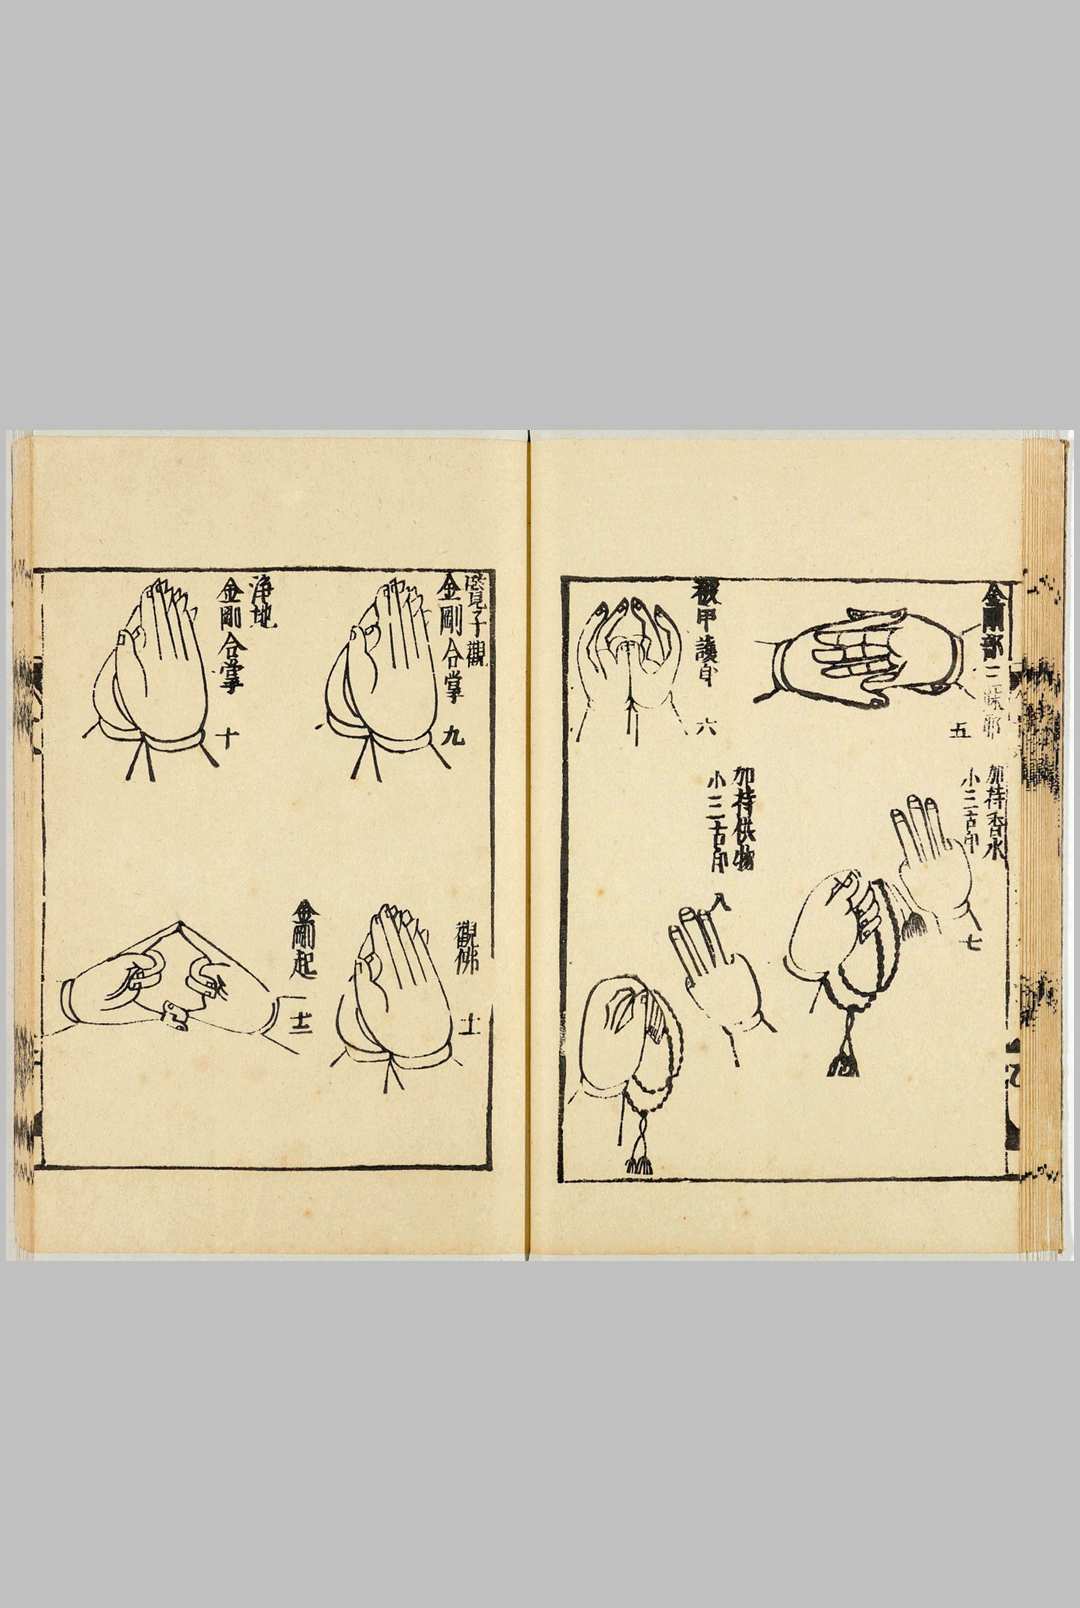 金剛部三昧耶
五
被甲護身
六
加持香水
小三古印
七
加持供物
小三古印
八
覽字觀
金剛合掌
九
淨地
金剛合掌
十
觀佛
十一
金剛起
十二